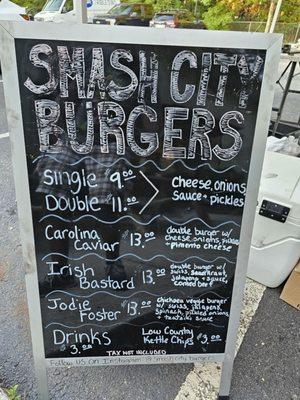 SMASH CITY
BURGERS
Single $9.00
Double $11.00
cheese, onions
Sauce + pickles
Carolina
Caviar $13.00
double burger w/
cheese, onions, pickles
+ pimento cheese
Irish
Bastard $13.00
double burger w/
Swiss, sauerkraut,
jalapeno + sauce,
corned beef
Jodie
Foster $13.00
chickpea veggie burger
w/ swiss, jalapeno,
spinach, pickled onions
+ tzatziki sauce
Drinks
$3.00
Low Country
Kettle Chips $3.00
TAX NOT INCLUDED
Follow us on Instagram @smashcity.burgers